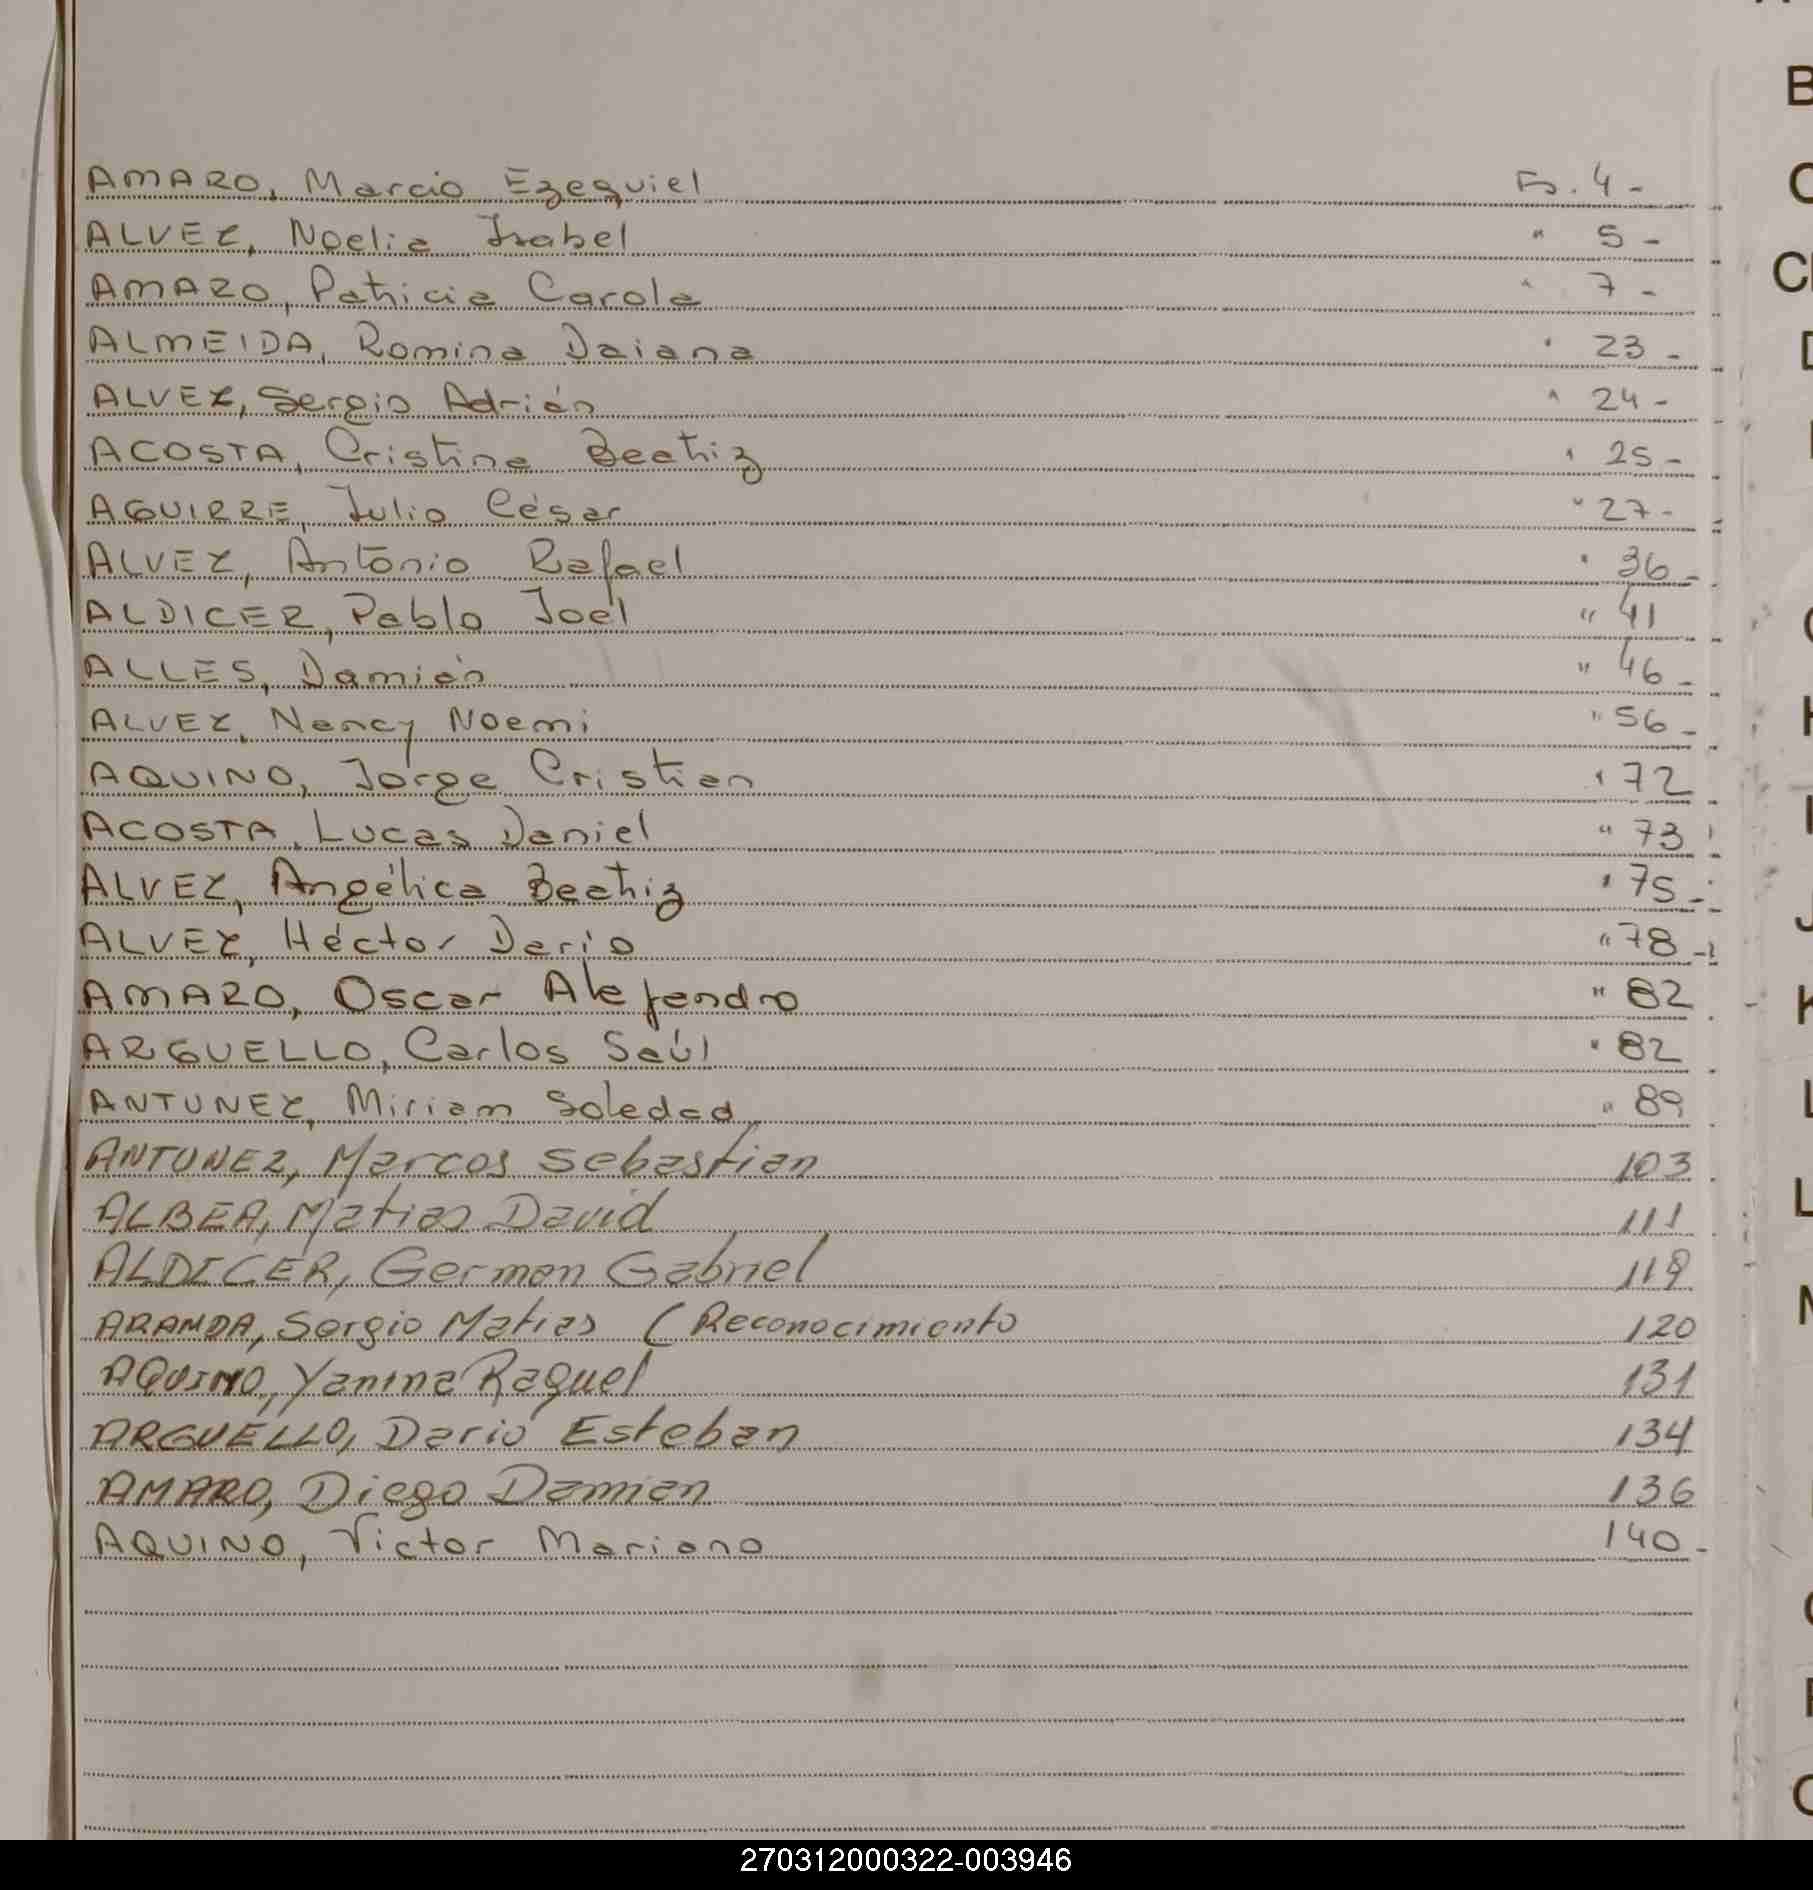 AMARO, Marcio Ezequiel Fo. 4 -
ALVEZ, Noelia Isabel " 5 -
AMARO, Patricia Carola " 7 -
ALMEIDA, Romina Daiana " 23 -
ALVEZ, Sergio Adrián " 24 -
ACOSTA, Cristina Beatriz " 25 -
AGUIRRE, Julio César " 27 -
ALVEZ, Antonio Rafael " 36 -
ALDICER, Pablo Joel " 41
ALLES, Damián " 46 -
ALVEZ, Nancy Noemi " 56 -
AQUINO, Jorge Cristian " 72
ACOSTA, Lucas Daniel " 73
ALVEZ, Angélica Beatriz " 75 -
ALVEZ, Héctor Dario " 78 -
AMARO, Oscar Alejandro " 82
ARGUELLO, Carlos Saúl " 82
ANTUNEZ, Miriam Soledad " 89
ANTUNEZ, Marcos Sebastian 103
ALBEA, Matias David 111
ALDICER, German Gabriel 119
ARANDA, Sergio Matias (Reconocimiento 120
AQUINO, Yanina Raquel 131
ARGUELLO, Dario Esteban 134
AMARO, Diego Damian 136
AQUINO, Victor Mariano 140 -
270312000322-003946